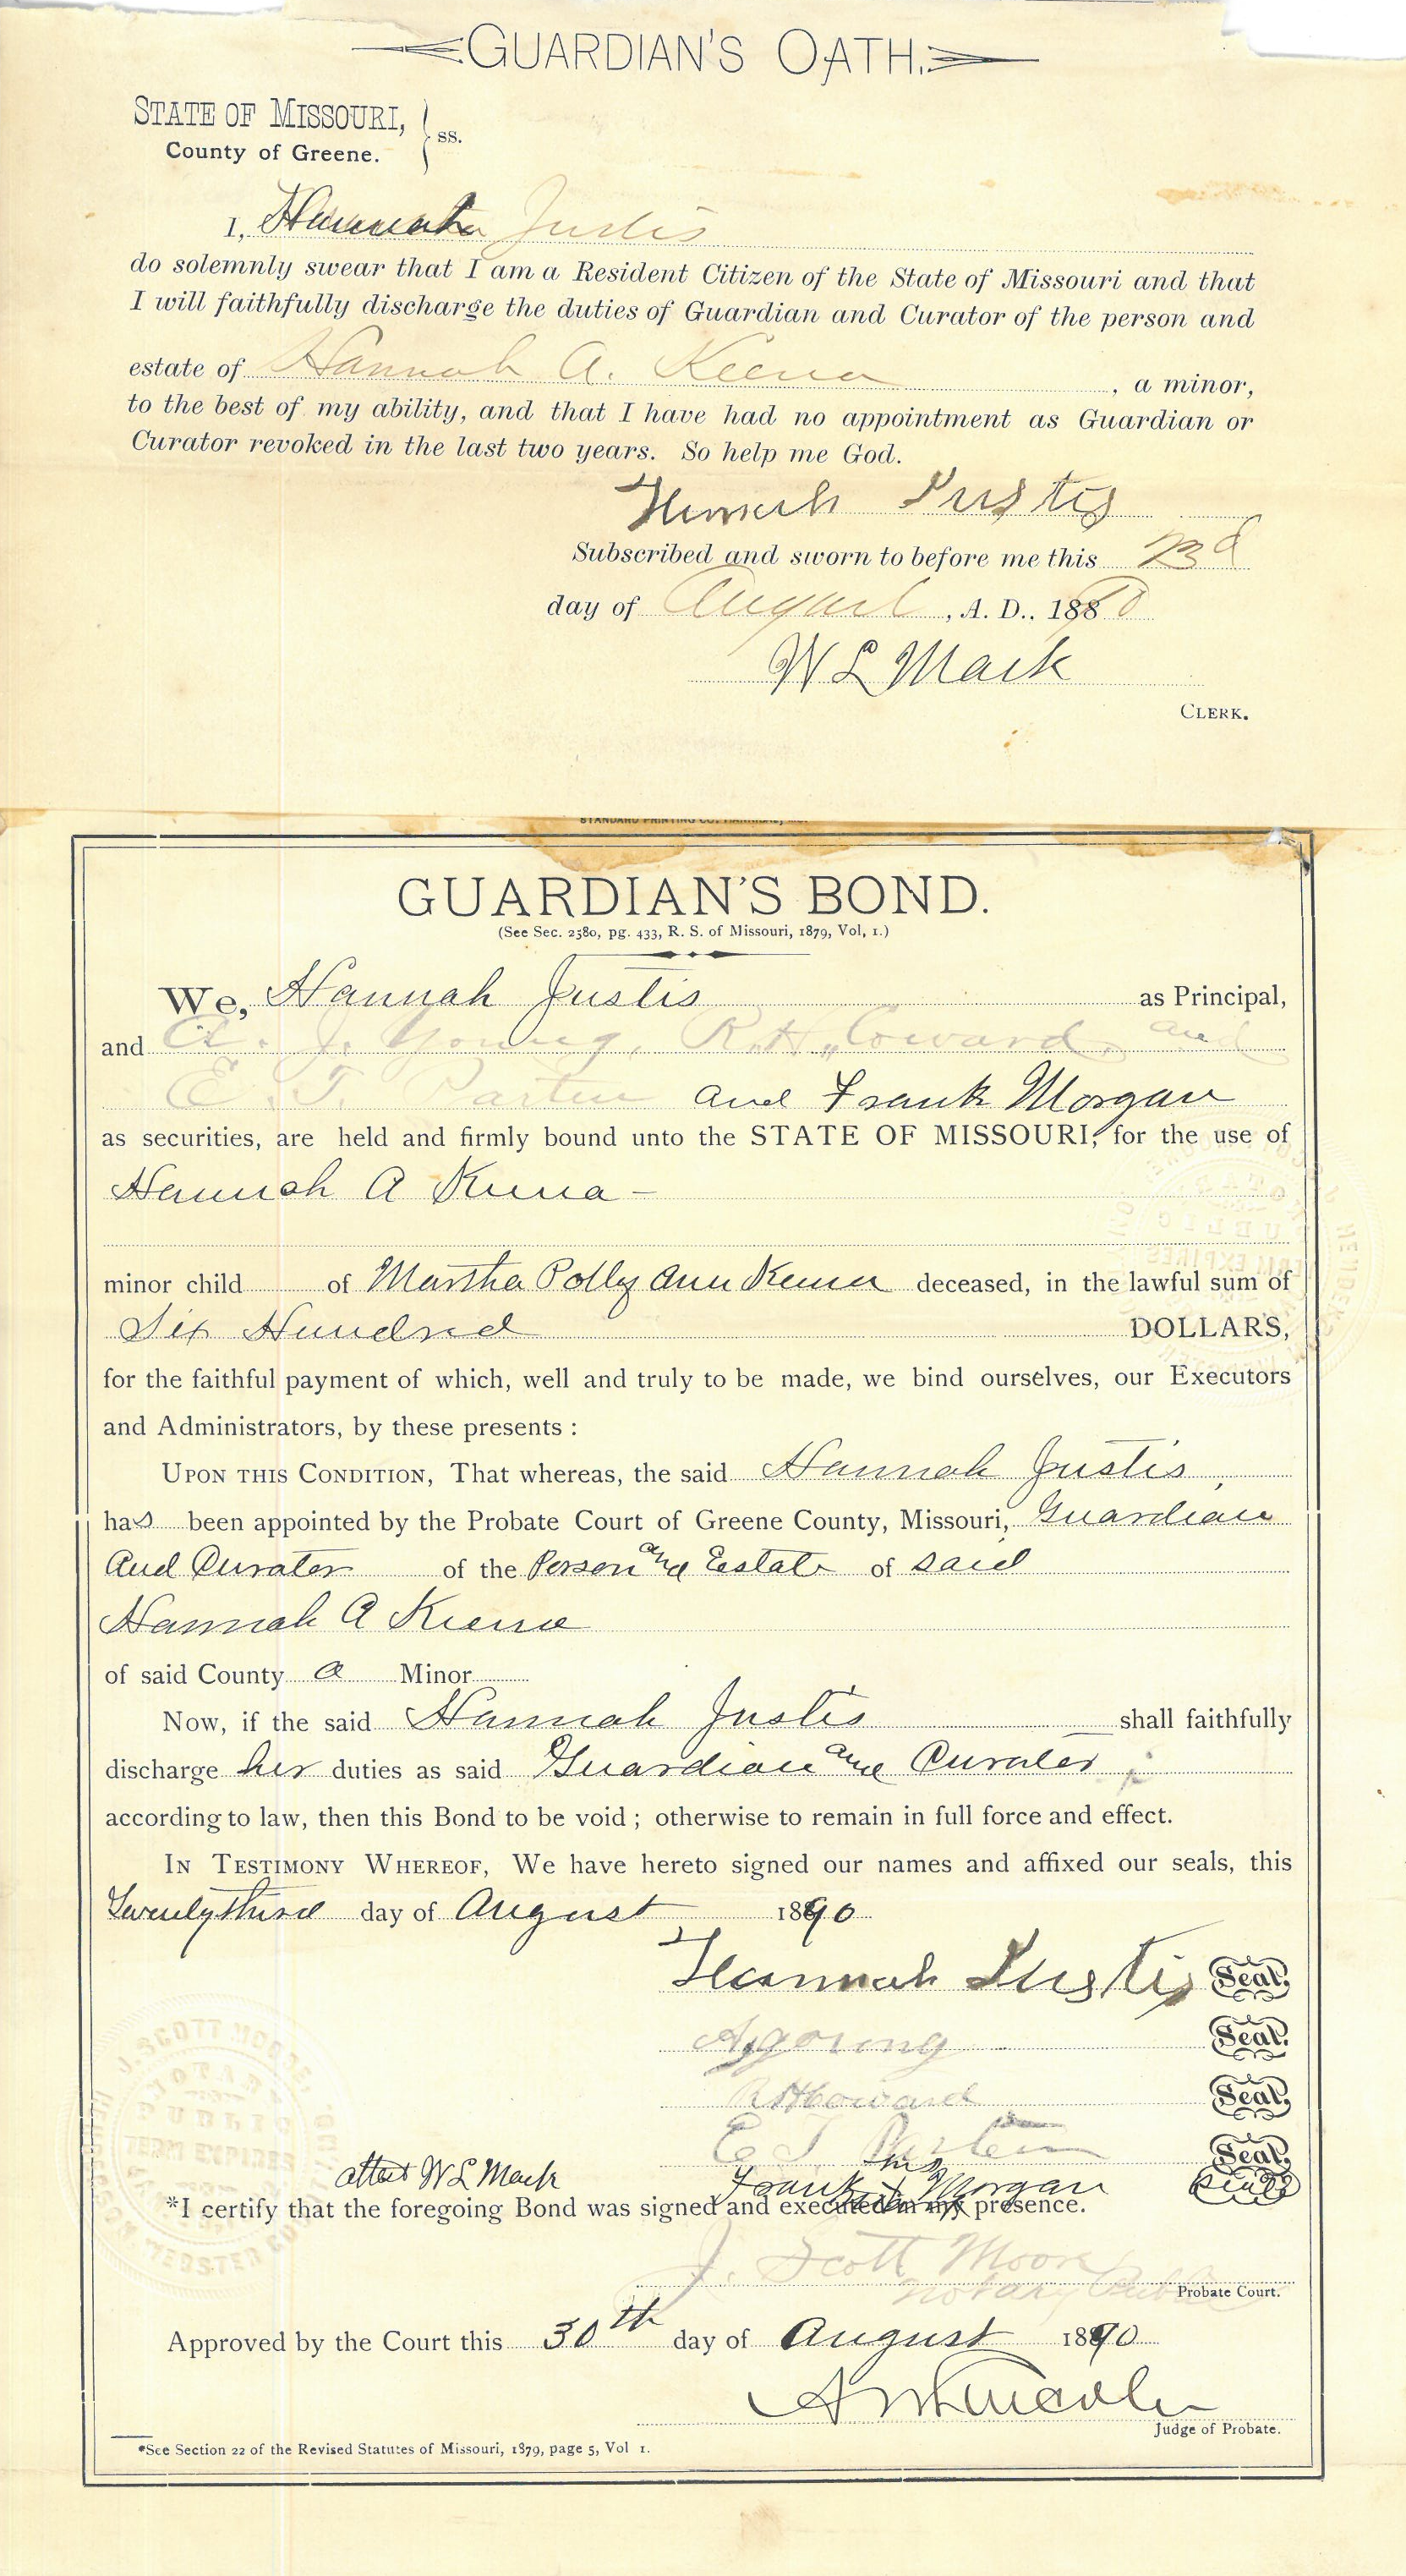 GUARDIAN'S OATH.
STATE OF MISSOURI,
County of Greene. } ss.
I, Hannah Justis
do solemnly swear that I am a Resident Citizen of the State of Missouri and that
I will faithfully discharge the duties of Guardian and Curator of the person and
estate of Hannah A. Keena , a minor,
to the best of my ability, and that I have had no appointment as Guardian or
Curator revoked in the last two years. So help me God.
Hannah Justis
Subscribed and sworn to before me this 23d
day of August , A. D., 1890
W L Mack
CLERK.
STANDARD PRINTING CO., HANNIBAL, MO.
GUARDIAN'S BOND.
(See Sec. 2580, pg. 433, R. S. of Missouri, 1879, Vol, 1.)
We, Hannah Justis as Principal,
and A. J. Young, R. H. Coward, and
E. T. Parten and Frank Morgan
as securities, are held and firmly bound unto the STATE OF MISSOURI, for the use of
Hannah A Keena -
minor child of Martha Polly Ann Keena deceased, in the lawful sum of
Six Hundred DOLLARS,
for the faithful payment of which, well and truly to be made, we bind ourselves, our Executors
and Administrators, by these presents :
UPON THIS CONDITION, That whereas, the said Hannah Justis,
has been appointed by the Probate Court of Greene County, Missouri, Guardian
And Curator of the Person and Estate of said
Hannah A Keena
of said County a Minor
Now, if the said Hannah Justis shall faithfully
discharge her duties as said Guardian and Curator ;
according to law, then this Bond to be void ; otherwise to remain in full force and effect.
IN TESTIMONY WHEREOF, We have hereto signed our names and affixed our seals, this
Twenty third day of August 1890
Hannah Justis Seal.
A J Young Seal.
R H Coward Seal.
E T Parten Seal.
attest W L Mack Frank his x mark Morgan Seal
*I certify that the foregoing Bond was signed and executed in my presence.
J. Scott Moore
Notary Public Probate Court.
Approved by the Court this 30th day of August 1890
Judge of Probate.
*See Section 22 of the Revised Statutes of Missouri, 1879, page 5, Vol 1.
J. SCOTT MOORE
NOTARY
PUBLIC
TERM EXPIRES
WEBSTER CO